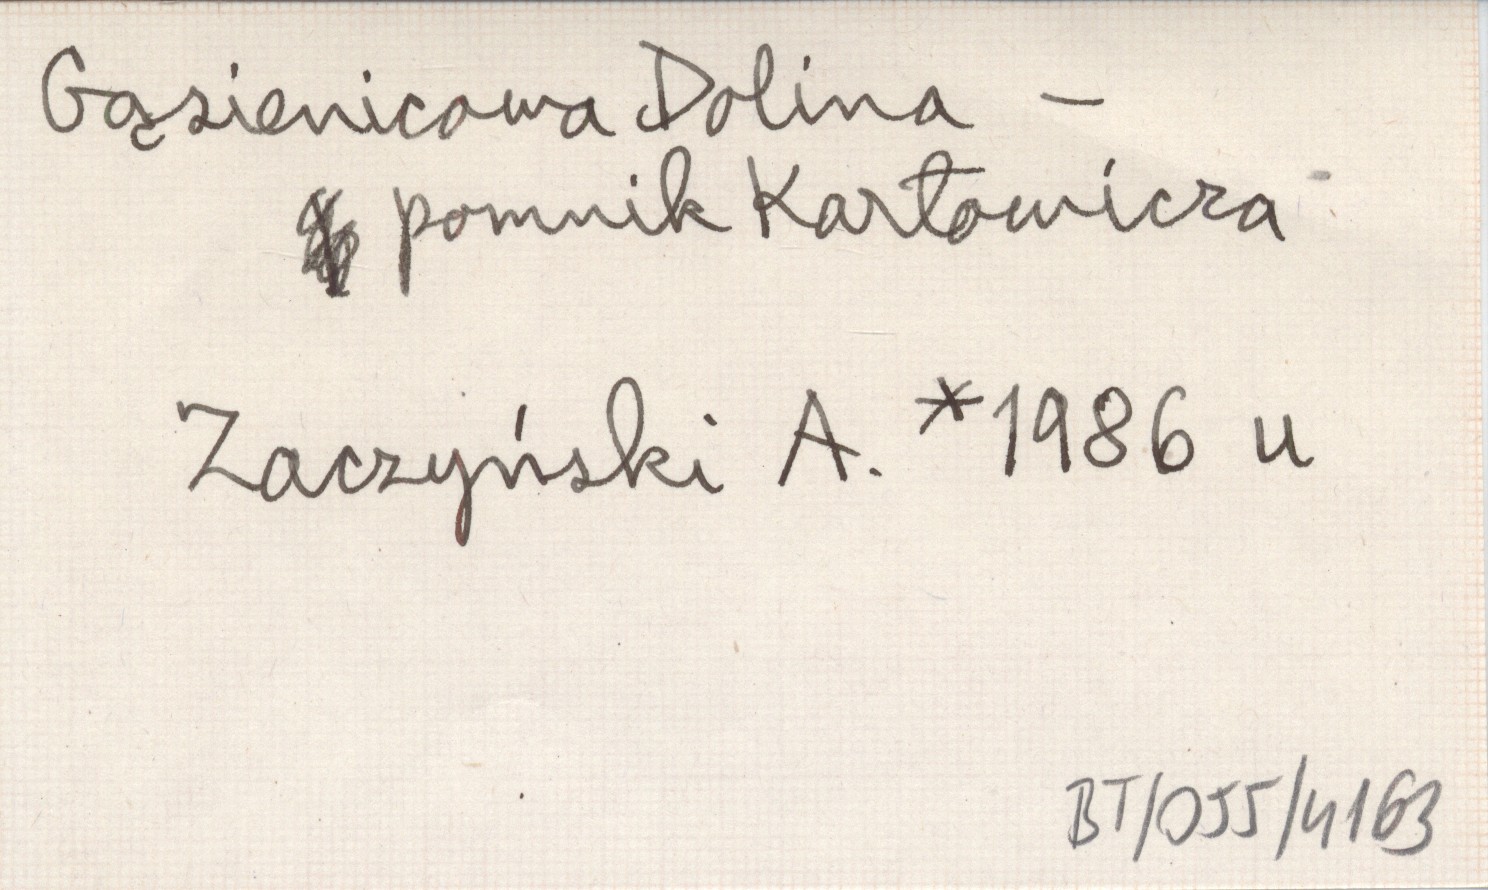 Gąsienicowa Dolina –
pomnik Karłowicza
Zaczyński A. *1986 u
BT/055/4163